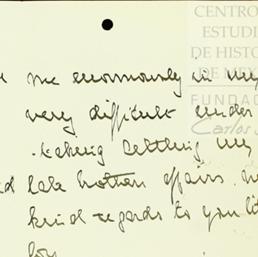 CENTRO
ESTUDI
DE HISTO
DE MÉX
FUNDAC
Carlos
me enormously in my
very difficult under
taking settling my
late brother affairs.
kind regards to you